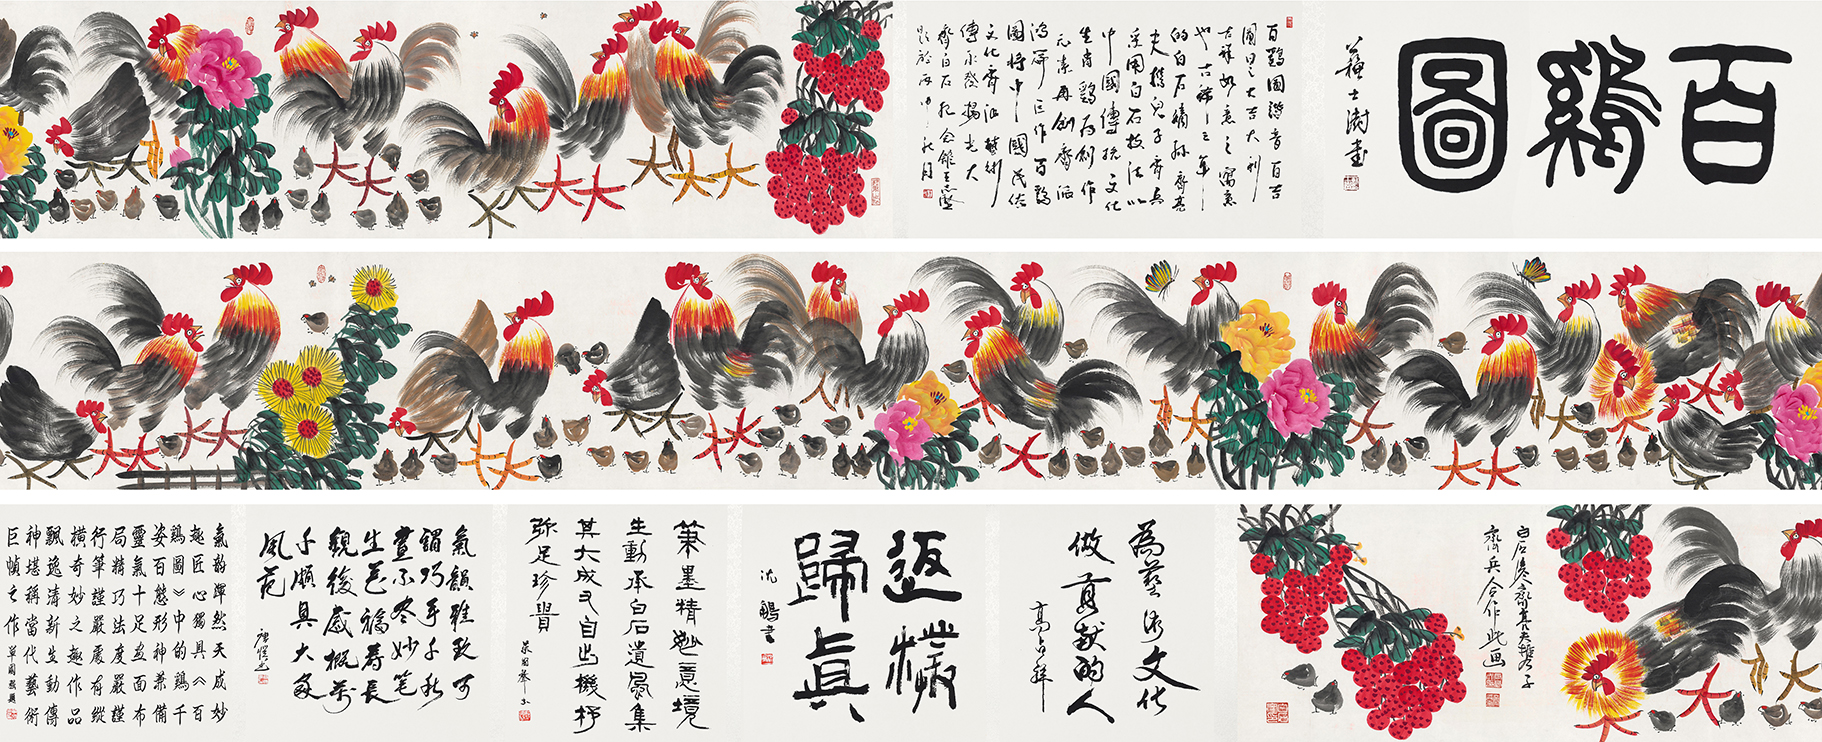 百鷄圖
蘇士澍書
百鷄圖諧音百吉
圖曰之大吉大利
吉祥如意之寓意
也古稀之年
的白石嫡孫齊亮
夫携兒子齊兵
采用白石技法以
中國傳統文化
生肖鷄为創作
元素再創齊派
鴻篇巨作百鷄
圖將中國民俗
文化齊派藝術
傳承發揚光大
齊白石紀念館王志
題於丙申秋月
白石後人齊亮夫携子
齊兵合作此画
為藝術文化
做貢献的人
高占祥
返樸
歸真
沈鵬書
筆墨精勁意境
生動承白石遺風集
其大成又自出機杼
弥足珍貴
氣韻雅致可
謂巧手千秋
畫不尽妙笔
生花福壽長
觀後感概萬
千頗具大家
风范
氣韵渾然天成妙
趣匠心獨具《百
鷄圖》中的鷄千
姿百態形神兼備
靈氣十足画面布
局精巧法度嚴謹
行筆謹嚴處有縱
橫奇妙之趣作品
飄逸清新生動傳
神堪稱當代藝術
巨幀之作
單國強題